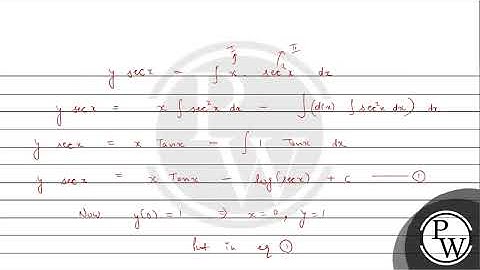 I II
y sec x = ∫ x · sec²x dx
y sec x = x ∫ sec²x dx - ∫ (d(x) ∫ sec²x dx) dx
y sec x = x Tanx - ∫ 1 Tanx dx
y sec x = x Tanx - log(sec x) + c —— ①
Now y(0) = 1 ⇒ x = 0, y = 1
Put in eq ①
PW
PW